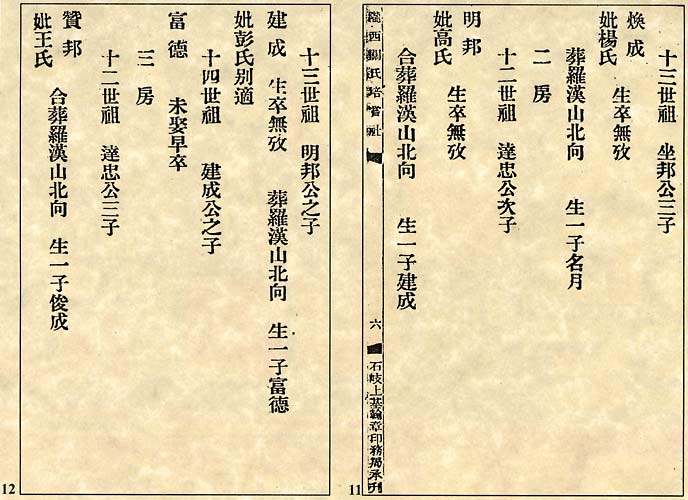 十三世祖 坐邦公三子
煥成 生卒無攷
妣楊氏
葬羅漢山北向 生一子名月
二房
十二世祖 達忠公次子
明邦 生卒無攷
妣高氏
合葬羅漢山北向 生一子建成
六
石岐上基翰章印務局承刊
11
十三世祖 明邦公之子
建成 生卒無攷 葬羅漢山北向 生一子富德
妣彭氏别適
十四世祖 建成公之子
富德 未娶早卒
三房
十二世祖 達忠公三子
贊邦 合葬羅漢山北向 生一子俊成
妣王氏
12